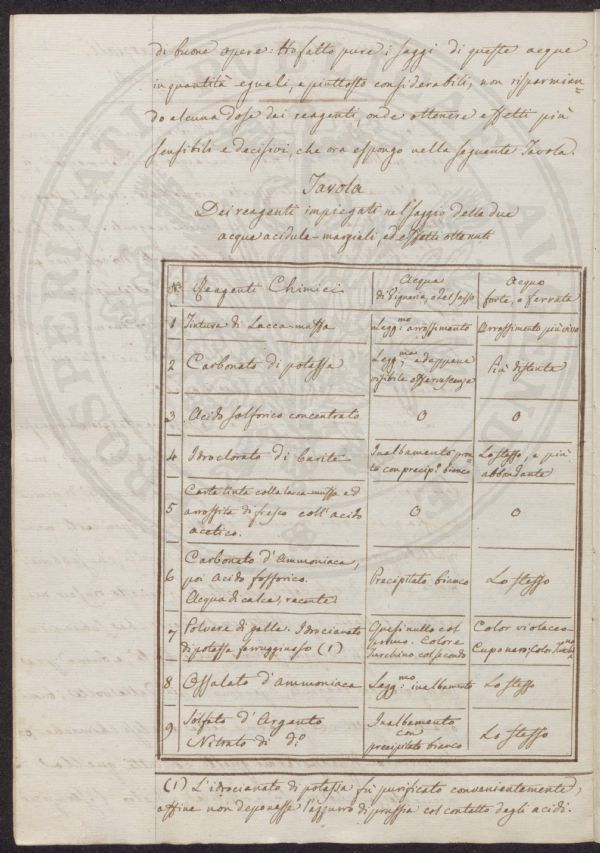 di buone opere: Ho fatto pure i saggi di queste acque
in quantità eguali, e piuttosto considerabili, non risparmian=
do alcuna dose dei reagenti, onde ottenere effetti più
sensibili e decisivi, che ora espongo nella seguente Tavola.
Tavola
Dei reagenti impiegati nel saggio delle due
acque acidule-marziali, ed effetti ottenuti
N.° Reagenti Chimici Acqua di Vignaria, e del Sasso Acqua forte, o ferrata
1 Tintura di Lacca-muffa Legg:mo arrossimento Arrossimento più vivo
2 Carbonato di potassa Legg:ma, ed appena visibile effervescenza Più distinta
3 Acido solforico concentrato 0 0
4 Idroclorato di barite Inalbamento pron=to con precip.° bianco Lo stesso, e più abbondante
5 Carta tinta colla lacca-muffa ed arrossita di fresco coll'acido acetico. 0 0
6 Carbonato d'Ammoniaca, poi Acido fosforico. Acqua di calce, recente Precipitato bianco Lo stesso
7 Polvere di galla. Idrocianato di potassa ferruginoso (1) Quasi nullo col primo. Colore Turchino col secondo Color violaceo Cupo nero; Color Turchino
8 Ossalato d'Ammoniaca Legg:mo inalbamento Lo stesso
9 Solfato d'Argento Nitrato di d.° Inalbamento con precipitato bianco Lo stesso
(1) L'idrocianato di potassa fù purificato convenientemente,
affine non deponesse l'azzurro di prussia col contatto degli acidi.